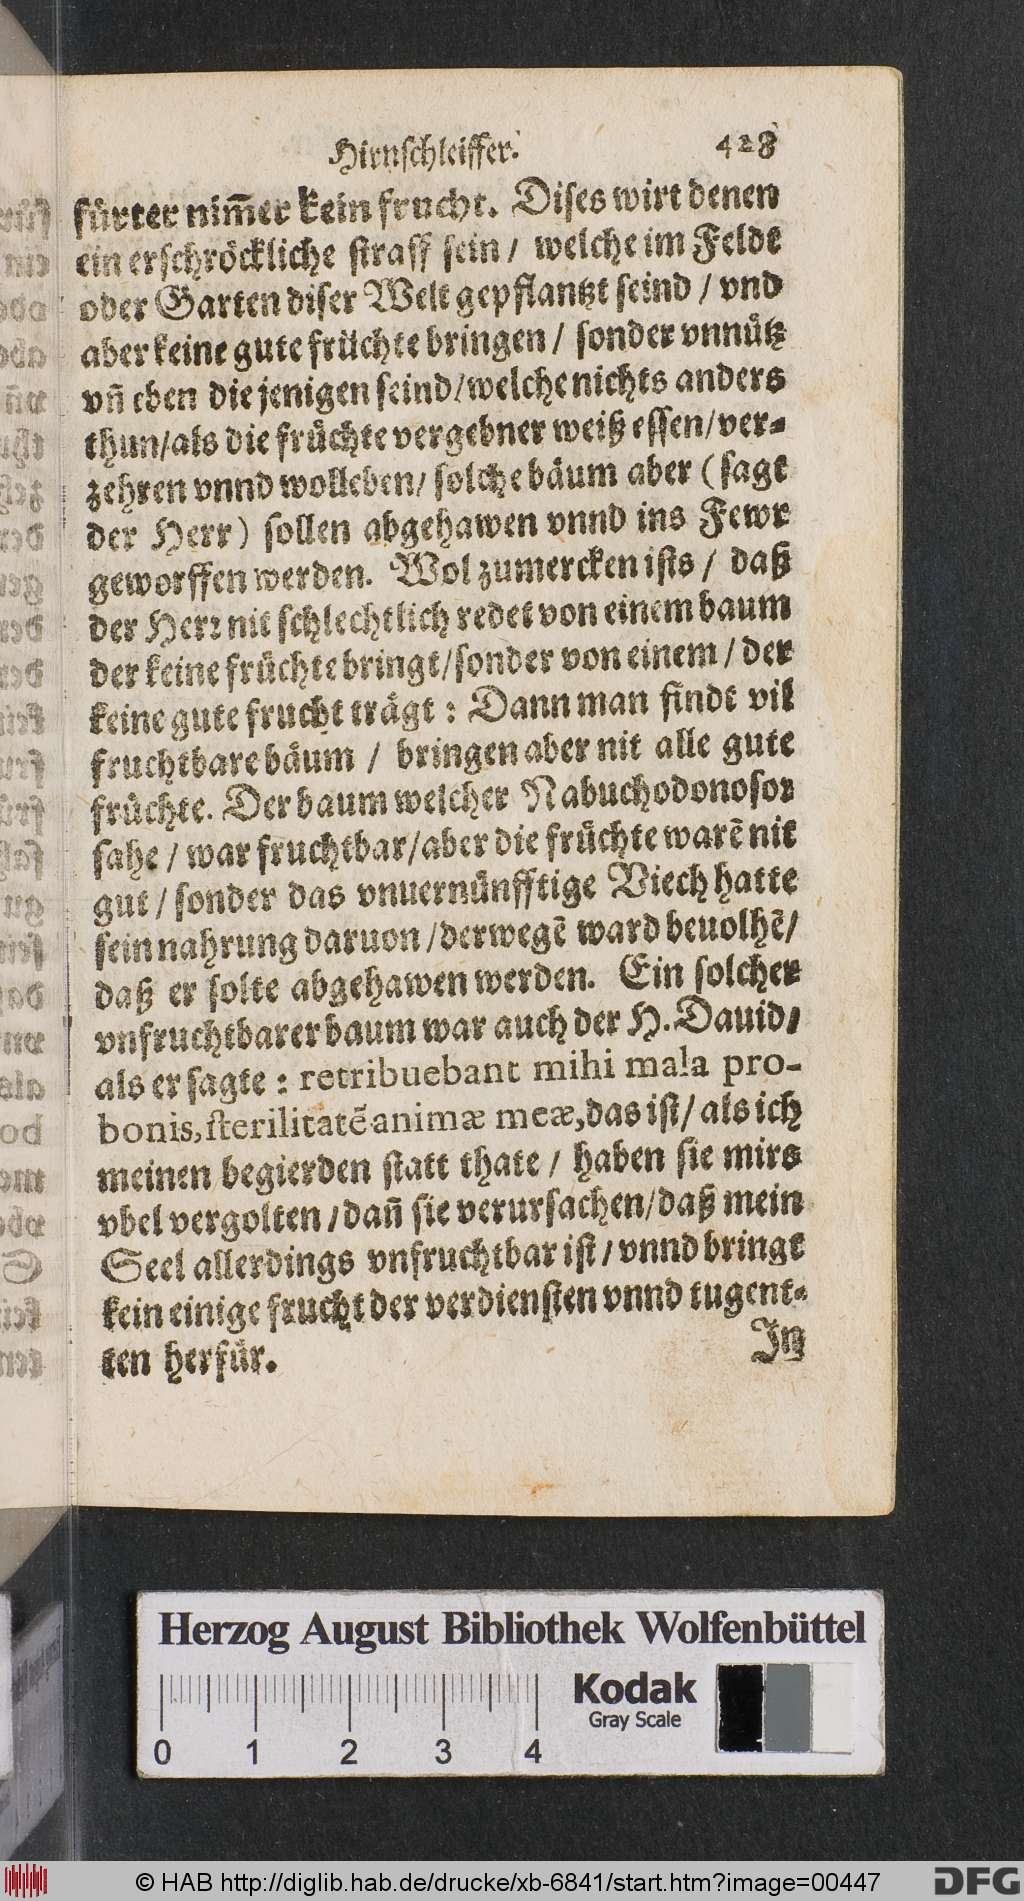 Hirnschleiffer. 428
fürter nim̄er kein frucht. Dises wirt denen
ein erschröckliche straff sein / welche im Feldt
oder Garten diser Welt gepflantzt seind / vnd
aber keine gute früchte bringen / sonder vnnütz
vn̄ eben die jenigen seind/welche nichts anders
thun/als die früchte vergebner weiß essen/ver-
zehren vnnd wolleben/ solche bäum aber (sagt
der Herr) sollen abgehawen vnnd ins Fewr
geworffen werden. Wol zumercken ists / daß
der Herr nit schlechtlich redet von einem baum
der keine früchte bringt/sonder von einem / der
keine gute frucht trägt : Dann man findt vil
fruchtbare bäum / bringen aber nit alle gute
früchte. Der baum welcher Nabuchodonosor
sahe / war fruchtbar/aber die früchte warē nit
gut / sonder das vnuernünfftige Viech hatte
sein nahrung daruon /derwegē ward beuolhē/
daß er solte abgehawen werden. Ein solcher
vnfruchtbarer baum war auch der H. Dauid/
als er sagte : retribuebant mihi mala pro-
bonis, sterilitatē animæ meæ,das ist/ als ich
meinen begierden statt thate / haben sie mirs
vbel vergolten /dan̄ sie verursachen/daß mein
Seel allerdings vnfruchtbar ist / vnnd bringt
kein einige frucht der verdiensten vnnd tugent-
ten herfür.
In
Herzog August Bibliothek Wolfenbüttel
Kodak
Gray Scale
0 1 2 3 4
© HAB http://diglib.hab.de/drucke/xb-6841/start.htm?image=00447
DFG